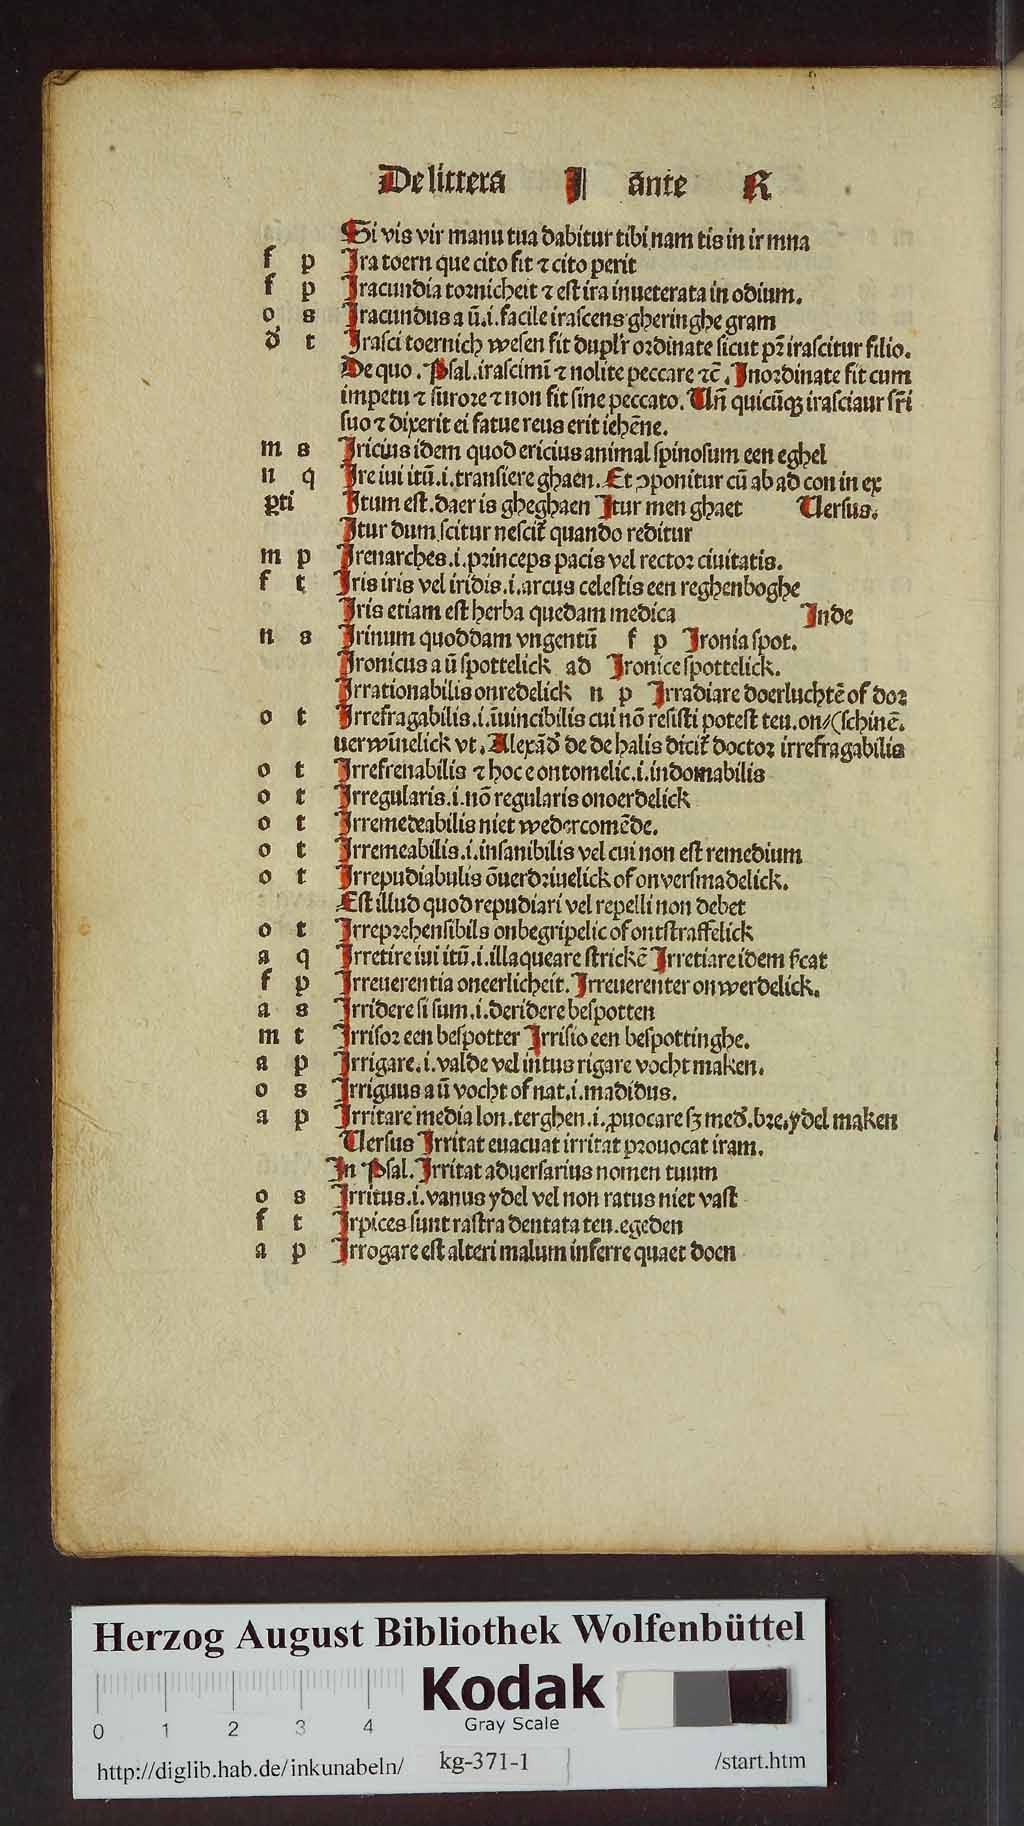 De littera I ante R
Si vis vir manu tua dabitur tibi nam tis in ir mna
f p Ira toern que cito fit ⁊ cito perit
f p Iracundia tornicheit ⁊ est ira inueterata in odium.
o s Iracundus a ū.i.facile irascens gheringhe gram
d̉ t Irasci toernich wesen fit dupl'r ordinate sicut pr̄ irascitur filio.
De quo.Psal.irascimī ⁊ nolite peccare ⁊c̄.Inordinate fit cum
impetu ⁊ furore ⁊ non fit sine peccato.Uñ quicūqꝫ irasciaur fr̄i
suo ⁊ dixerit ei fatue reus erit iehēne.
m s Iricius idem quod ericius animal spinosum een eghel
n q Ire iui itū.i.transiere ghaen.Et ꝯponitur cū ab ad con in ex
ꝑti Itum est.daer is gheghaen Itur men ghaet Uersus.
Itur dum scitur nescit̉ quando reditur
m p Irenarches.i.princeps pacis vel rector ciuitatis.
f t Iris iris vel iridis.i.arcus celestis een reghenboghe
Iris etiam est herba quedam medica Inde
n s Irinum quoddam vngentū f p Ironia spot.
Ironicus a ū spottelick ad Ironice spottelick.
Irrationabilis onredelick n p Irradiare doerluchtē of dor
o t Irrefragabilis.i.īuincibilis cui nō resisti potest teu.on/(schinē.
uerwīnelick vt.Alexād̉ de de halis dicit̉ doctor irrefragabilis
o t Irrefrenabilis ⁊ hoc e ontomelic.i.indomabilis
o t Irregularis.i.nō regularis onoerdelick
o t Irremedeabilis niet wedercomēde.
o t Irremeabilis.i.insanibilis vel cui non est remedium
o t Irrepudiabulis ōuerdriuelick of onversmadelick.
Est illud quod repudiari vel repelli non debet
o t Irreprehensibils onbegripelic of ontstraffelick
a q Irretire iui itū.i.illaqueare strickē Irretiare idem scat
f p Irreuerentia oneerlicheit.Irreuerenter onwerdelick.
a s Irridere si sum.i.deridere bespotten
m t Irrisor een bespotter Irrisio een bespottinghe.
a p Irrigare.i.valde vel intus rigare vocht maken.
o s Irriguus a ū vocht of nat.i.madidus.
a p Irritare media lon.terghen.i.ꝓuocare sꝫ med̉.bre.ydel maken
Uersus Irritat euacuat irritat prouocat iram.
In Psal.Irritat aduersarius nomen tuum
o s Irritus.i.vanus ydel vel non ratus niet vast
f t Irpices sunt rastra dentata teu.egeden
a p Irrogare est alteri malum inferre quaet doen
Herzog August Bibliothek Wolfenbüttel
Kodak
Gray Scale
0 1 2 3 4
http://diglib.hab.de/inkunabeln/ kg-371-1 /start.htm